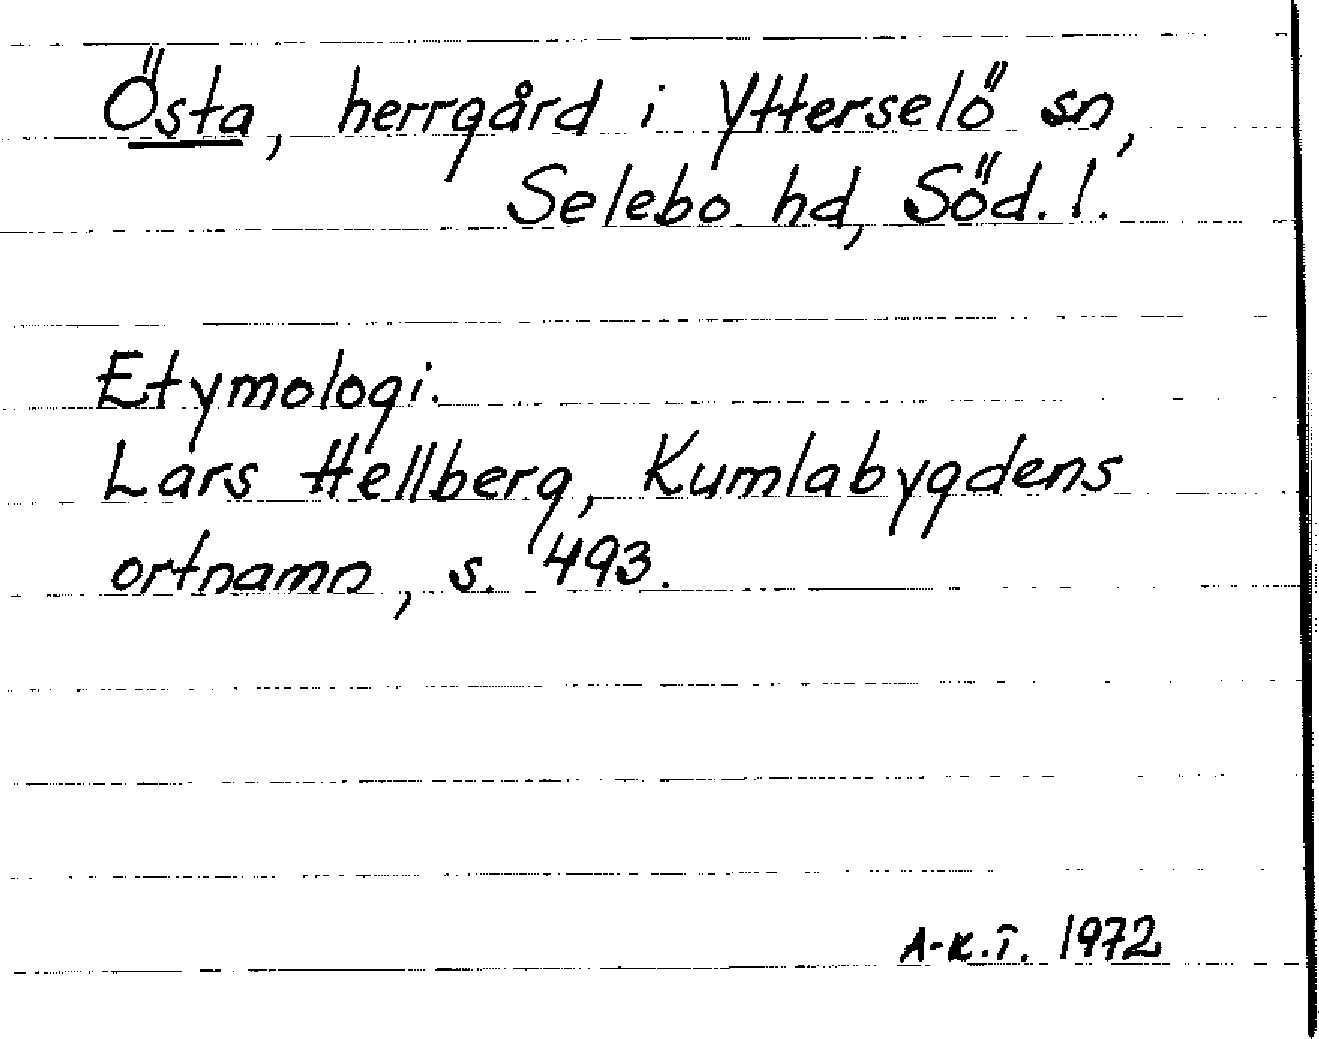 Östa, herrgård i Ytterselö sn,
Selebo hd, Söd. l.
Etymologi.
Lars Hellberg, Kumlabygdens
ortnamn, s. 493.
A-K.T. 1972